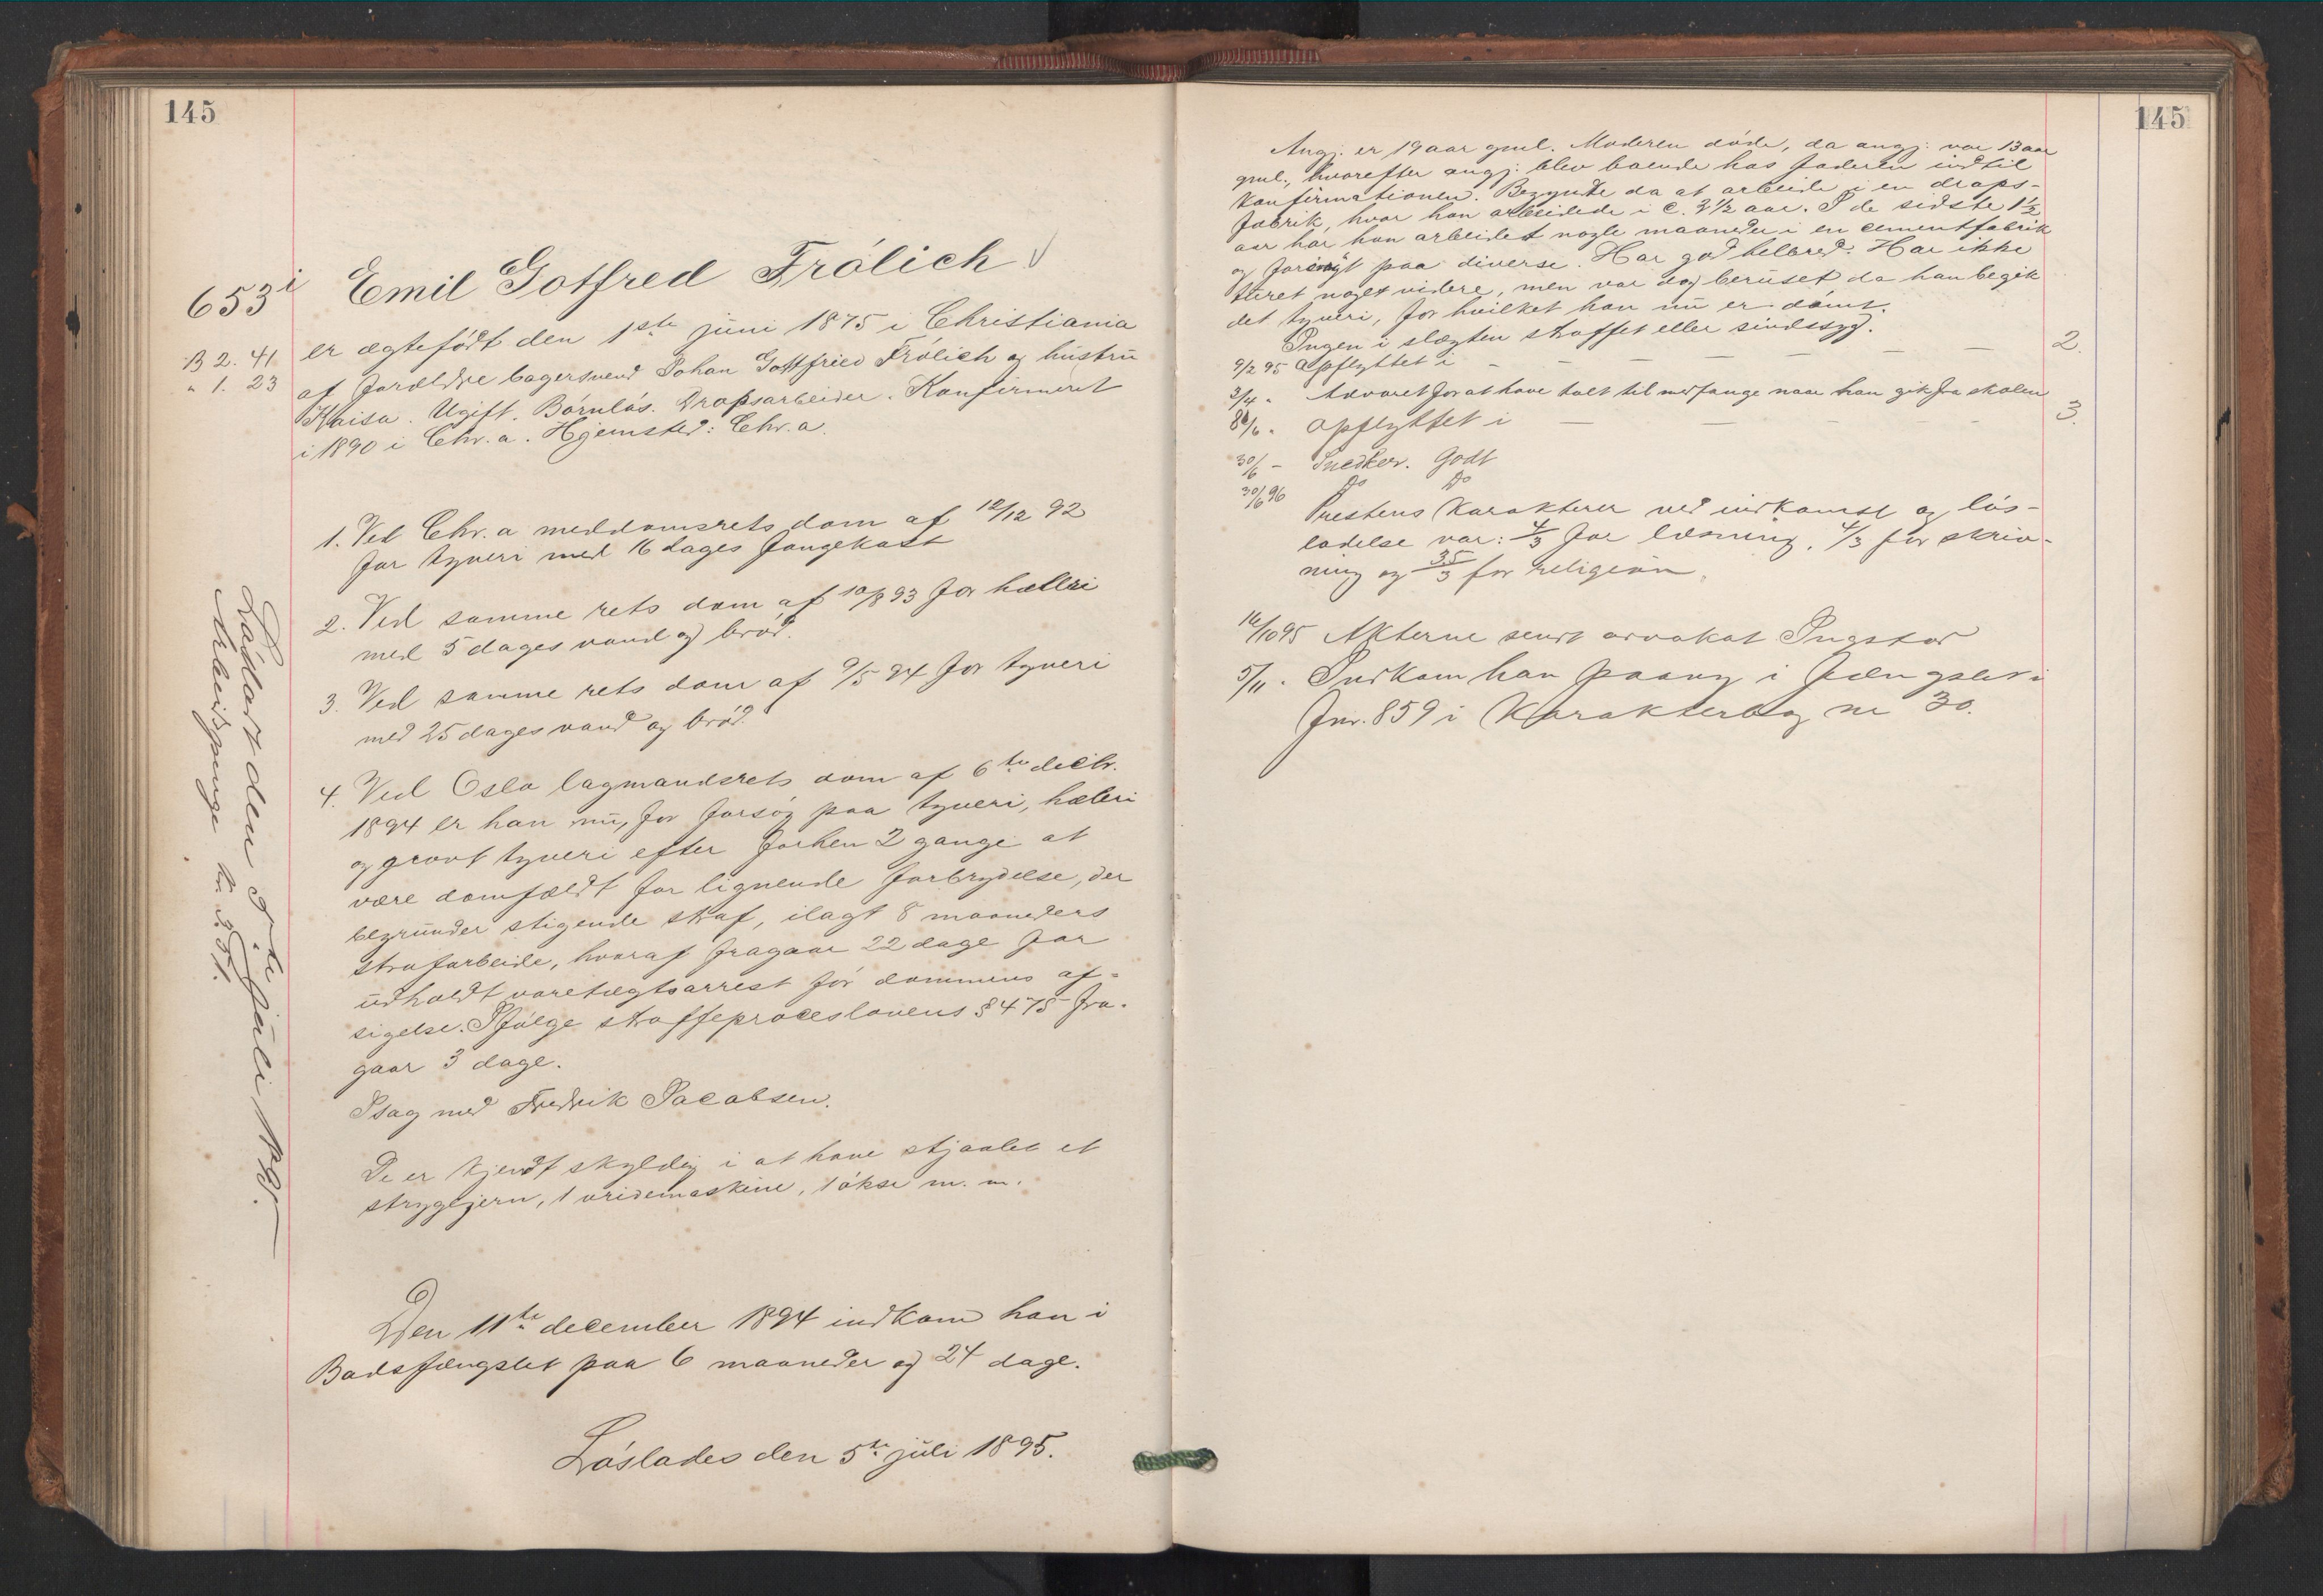 145
653 i
Emil Gotfred Frölich
B 2. 41
" 1. 23
er ægtefödt den 1ste juni 1875 i Christiania
af forældre bagersvend Johan Gottfried Frölich og hustru
Kaisa. Ugift. Börnlös. Dropsarbeider. Konfirmeret
i 1890 i Chr.a. Hjemsted: Chr.a.
1. Ved Chr.a meddomsrets dom af 12/12 92
for tyveri med 16 dages fangekost
2. Ved samme rets dom af 10/8 93 for hæleri
med 5 dages vand og bröd.
3. Ved samme rets dom af 9/5 94 for tyveri
med 25 dages vand og bröd.
4. Ved Oslo lagmandsrets dom af 6te decbr.
1894 er han nu, for forsög paa tyveri, hæleri
og grovt tyveri efter forhen 2 gange at
være domfældt for lignende forbrydelse, der
begrunder stigende straf, ilagt 8 maaneders
strafarbeide, hvoraf fragaar 22 dage for
udholdt varetægtsarrest för dommens af-
sigelse. Ifölge straffeproceslovens § 475 fra-
gaar 3 dage.
I sag med Fredrik Jacobsen.
De er kjendt skyldig i at have stjaalet et
strygejern, 1 vridemaskine, 1 ökse m. m.
Den 11te december 1894 indkom han i
Bodsfængslet paa 6 maaneder og 24 dage.
Löslades den 5te juli 1895.
Lösladt den 5te juli 1895.
Arbeidspenge kr.
145
Angj. er 19 aar gml. Moderen döde, da angj. var 13 aar
gml., hvorefter angj. blev boende hos faderen indtil
konfirmationen. Begynte da at arbeide i en drops-
fabrik, hvor han arbeidede i c. 3 1/2 aar. I de sidste 1 1/2
aar har han arbeidet nogle maaneder i en cementfabrik
og forövrigt paa diverse. Har god helbred. Har ikke
turet noget videre, men var dog beruset da han begik
det tyveri, for hvilket han nu er dömt.
Ingen i slægten straffet eller sindssyg.
9/2 95 Opflyttet i – – – – – – 2.
3/4 " Advaret for at have talt til medfange naar han gik fra skolen
8/6 " Opflyttet i – – – – 3.
30/6 – Snedker. Godt
30/6 96 Do Do
Prestens karakterer ved indkomst og lös-
ladelse var: 4/3 for læsning, 4/3 for skriv-
ning og 3,5/3 for religion.
16/10 95 Akterne sendt advokat Ingstad
5/11 " Indkom han paany i fængslet i
Jnr. 859 i Karakterbog nr 30.